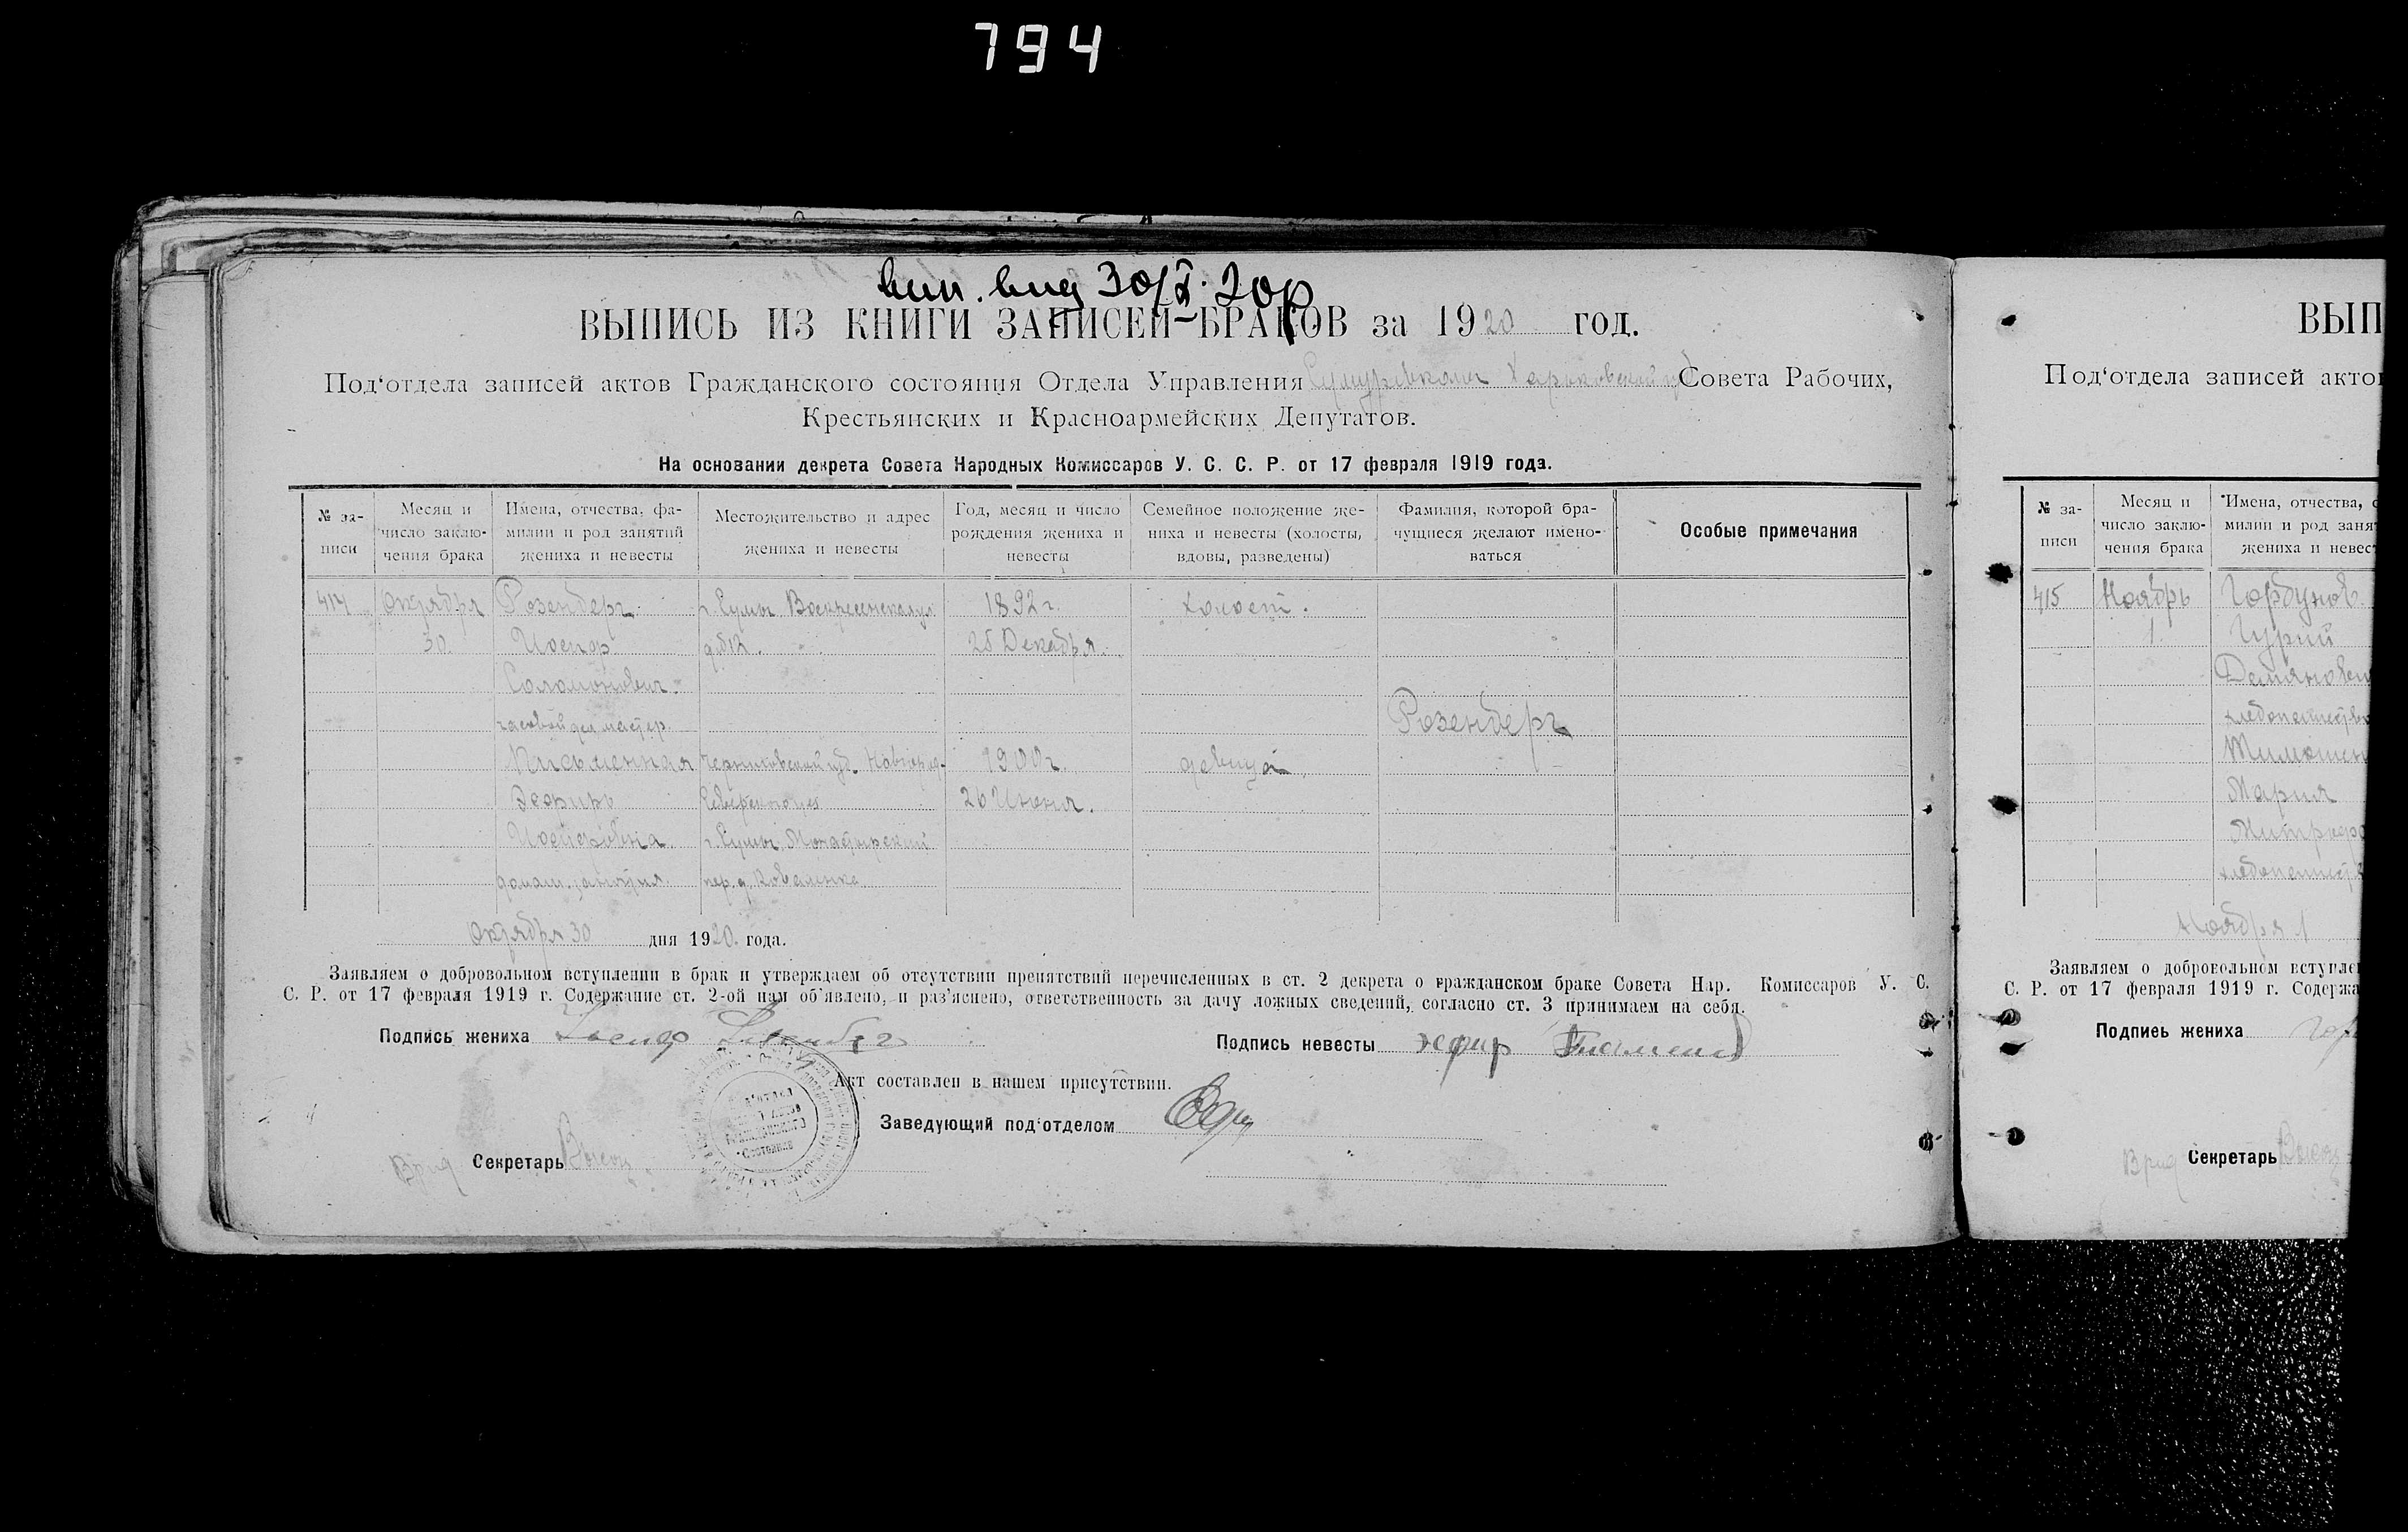 794
вип. вид 30/X. 20р
ВЫПИСЬ ИЗ КНИГИ ЗАПИСЕЙ-БРАКОВ за 1920 год.
Под‘отдела записей актов Гражданского состояния Отдела Управления Харьковской Совета Рабочих,
Крестьянских и Красноармейских Депутатов.
На основании декрета Совета Народных Комиссаров У. С. С. Р. от 17 февраля 1919 года.
№ за-писи
Месяц и число заклю-чения брака
Имена, отчества, фа-милии и род занятий жениха и невесты
Местожительство и адрес жениха и невесты
Год, месяц и число рождения жениха и невесты
Семейное положение же-ниха и невесты (холосты, вдовы, разведены)
Фамилия, которой бра-чущиеся желают имено-ваться
Особые примечания
414 Октября Розенберг г. Сумы Воскресенская ул 1892 г. холост.
30. Иосиф 25 Декабря.
Соломонович
часовой дел мастер Розенберг
Письменная Черниговской губ. Новгород- 1900 г. девица
Эсфирь Северского 26 Июня.
Иосифовна г. Сумы Монастырский
домаш. занятия. пер. д. Коваленко
Октября 30 дня 1920. года.
Заявляем о добровольном вступлении в брак и утверждаем об отсутствии препятствий перечисленных в ст. 2 декрета о гражданском браке Совета Нар. Комиссаров У. С.
С. Р. от 17 февраля 1919 г. Содержание ст. 2-ой нам об‘явлено, и раз‘яснено, ответственность за дачу ложных сведений, согласно ст. 3 принимаем на себя.
Подпись жениха Иосиф Розенберг Подпись невесты
Акт составлен в нашем присутствии.
Заведующий под‘отделом
Врид Секретарь
ВЫП
Под‘отдела записей акто
№ за-писи
Месяц и число заклю-чения брака
Имена, отчества, милии и род заня жениха и невес
415 Ноябрь Горбунов
1. Гурий
Демянови
хлебопашество
Тимошен
Мария
Митрофо
хлебопашест
Ноября 1
Заявляем о добровольном вступле
С. Р. от 17 февраля 1919 г. Содержа
Подпись жениха Гор
Врид Секретарь